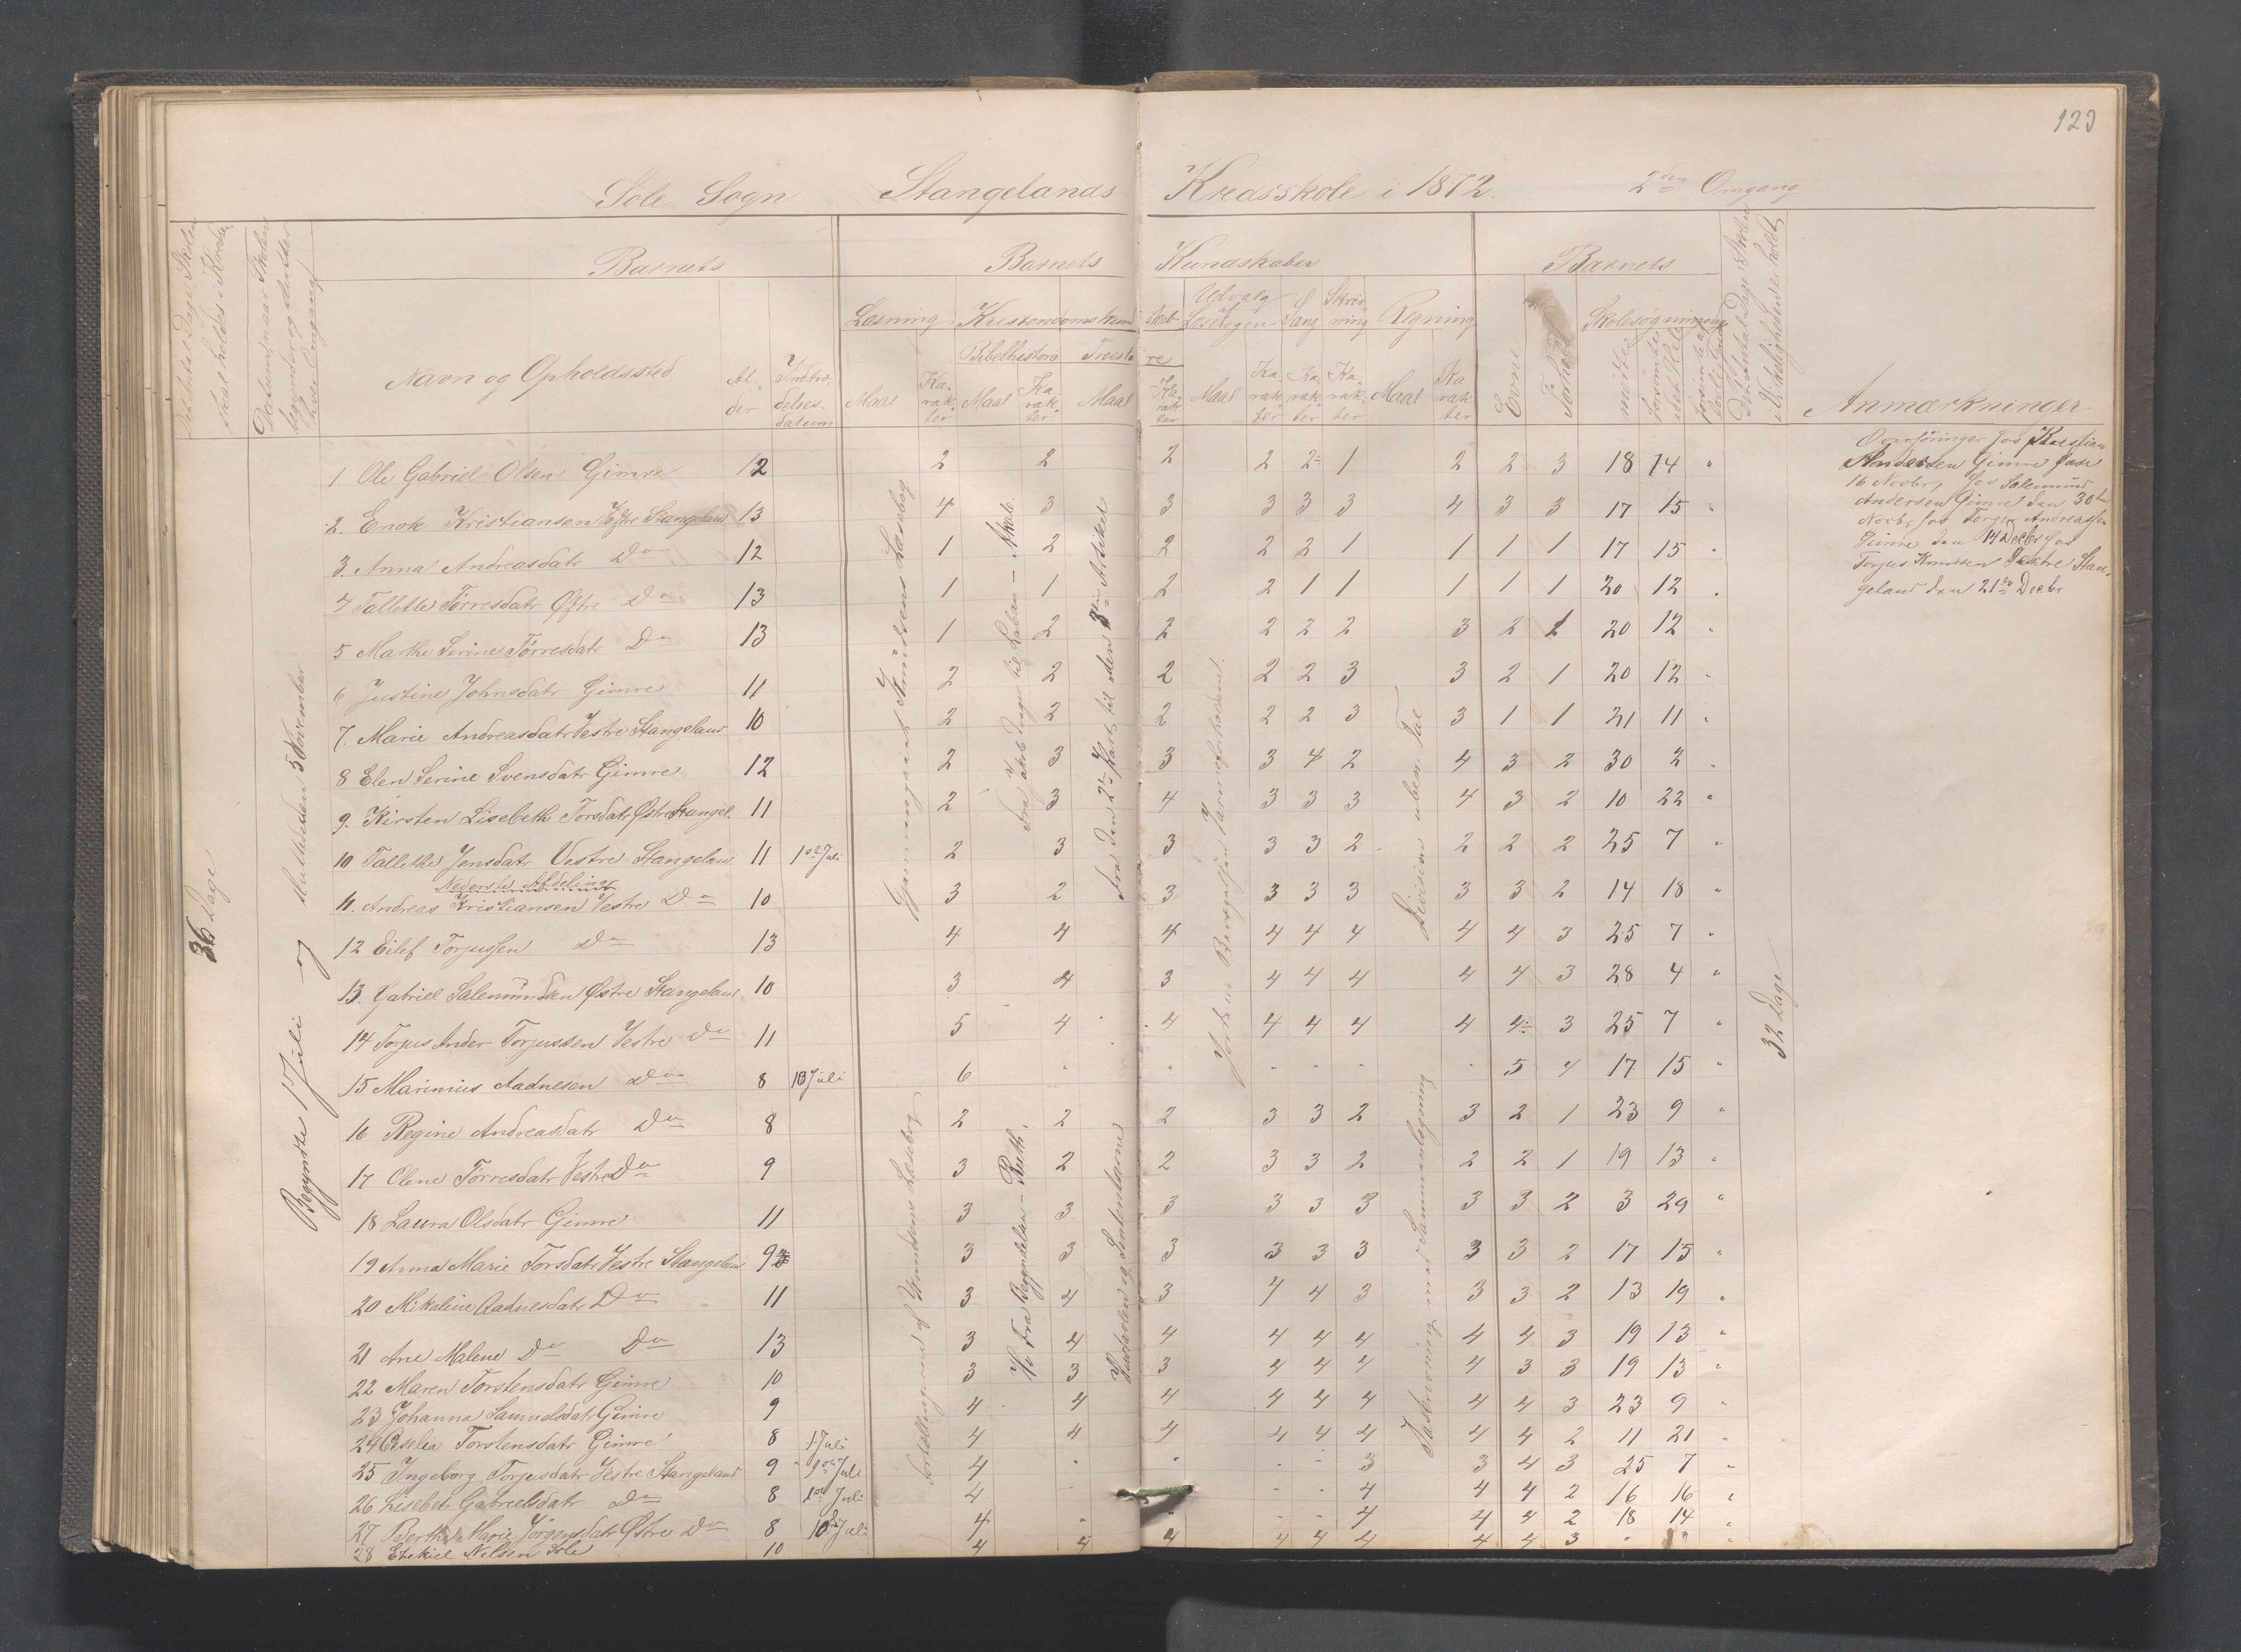 123
Sole Sogn Stangelands Kredsskole i 1872. 2den Omgang
Det Antal Dage Skolen skal holdes i Kredsen
Datum naar Skolen begynder og slutter hver Omgang
Barnets Barnets Kundskaber Barnets
Det Antal Dage Skolen i Virkeligheden er holdt
Læsning Kristendomskund skab Udvalg af Læsebogen Sang Skrivning Regning Skolesøgning
Bibelhistorie Troeslære
Navn og Opholdssted Alder Indtrædelsesdatum Maal Karakter Maal Karakter Maal Karakter Maal Karakter Karakter Karakter Maal Karakter Evne Forhold mødte forsømte det Hele Anmærkninger
36 Dage
Begyndte 1 Juli og sluttede den 5 November
1. Ole Gabriel Olsen Gimre 12 2 2 2 2 2 1 2 2 3 18 14 "
2. Enok Kristiansen Vestre Stangeland 13 4 3 3 3 3 3 4 3 3 17 15 "
3. Anna Andreasdatr Do 12 1 2 2 2 2 1 1 1 1 17 15 "
4 Tallette Tørresdatr Østre Do 13 1 1 2 2 1 1 1 1 1 20 12 "
5 Marthe Serine Tørresdatr Do 13 1 2 2 2 2 2 3 2 1 20 12 "
6 Justine Johnsdatr Gimre 11 2 2 2 2 2 3 3 2 1 20 12 "
7. Marie Andreasdatr Vestre Stangeland 10 2 2 2 2 2 3 3 1 1 21 11 "
8 Elen Serine Svensdatr Gimre 12 2 3 3 3 4 2 4 3 2 30 2 "
9. Kirsten Lisebeth Torsdatr Østre Stangel. 11 2 3 4 3 3 3 4 3 2 10 22 "
10 Tallethe Jensdatr Vestre Stangeland 11 1ste Juli 2 3 3 3 3 2 2 2 2 25 7 "
Nederste Afdeling
11. Andreas Kristiansen Vestre Do 10 3 2 3 3 3 3 3 3 2 14 18 "
12 Eilef Torjussen Do 13 4 4 4 4 4 4 4 4 3 25 7 "
13. Gabriel Salemunsen Østre Stangeland 10 3 4 3 4 4 4 4 4 3 28 4 "
14 Torjus Ander Torjussen Vestre Do 11 5 4 4 4 4 4 4 4 3 25 7 "
15 Marinius Aadnesen Do 8 10 Juli 6 " " " " " " 5 4 17 15 "
16 Regine Andreasdatr Do 8 2 2 2 3 3 2 3 2 1 23 9 "
17 Olene Tørresdatr Vestre Do 9 3 2 2 3 3 2 2 2 1 19 13 "
18 Laura Olsdatr Gimre 11 3 3 3 3 3 3 3 3 2 3 29 "
19 Anna Marie Torsdatr Vestre Stangeland 9 3 3 3 3 3 3 3 3 2 17 15 "
20 Mikaline Aadnesdatr Do 11 3 4 3 4 4 3 3 3 2 13 19 "
21 Ane Malene Do Do 13 3 4 4 4 4 4 4 4 3 19 13 "
22 Maren Torstensdatr Gimre 10 3 3 3 4 4 4 4 3 3 19 13 "
23 Johanna Samuelsdatr Gimre 9 4 4 4 4 4 4 4 4 3 23 9 "
24 Torstensdatr Gimre 8 1 Juli 4 4 4 4 4 4 4 4 2 11 21 "
25 Ingeborg Torjusdatr Vestre Stangeland 9 Juli 4 " " " " 3 3 4 3 25 7 "
26 Lisebet Gabrielsdatr Do 8 Juli 4 " " " 4 4 4 2 16 16 "
27 Berthe Marie Jørgensdatr Østre Do 8 10de Juli 4 " " " " 4 4 4 2 18 14 "
28 Ezekiel Nilsen Sole 10 4 4 4 4 4 4 4 4 3 " " "
Gjennemgaaet Knudsens Læsebog
Fra Jakob drager til Laban – Akab.
Fra den 2den Part til den 3die Artikel
Jorden Banegaard Varmeforholdene.
Division uben. Tal
Fortællingerne af Knudsens Læsebog
Fra Begyndelsen – Ruth.
Barnelærdom og Sententserne
Tavleskrivning med Sammenlægning
32 Dage
Overhøringer hos Kristian
Andersen Gimre den
16 Novbr, hos Salemund
Andersen Gimre den 30te
Novbr, hos Torger Andreassen
Gimre den 14 Decbr hos
Torjus Knutsen Vestre Stan-
geland den 21de Decbr